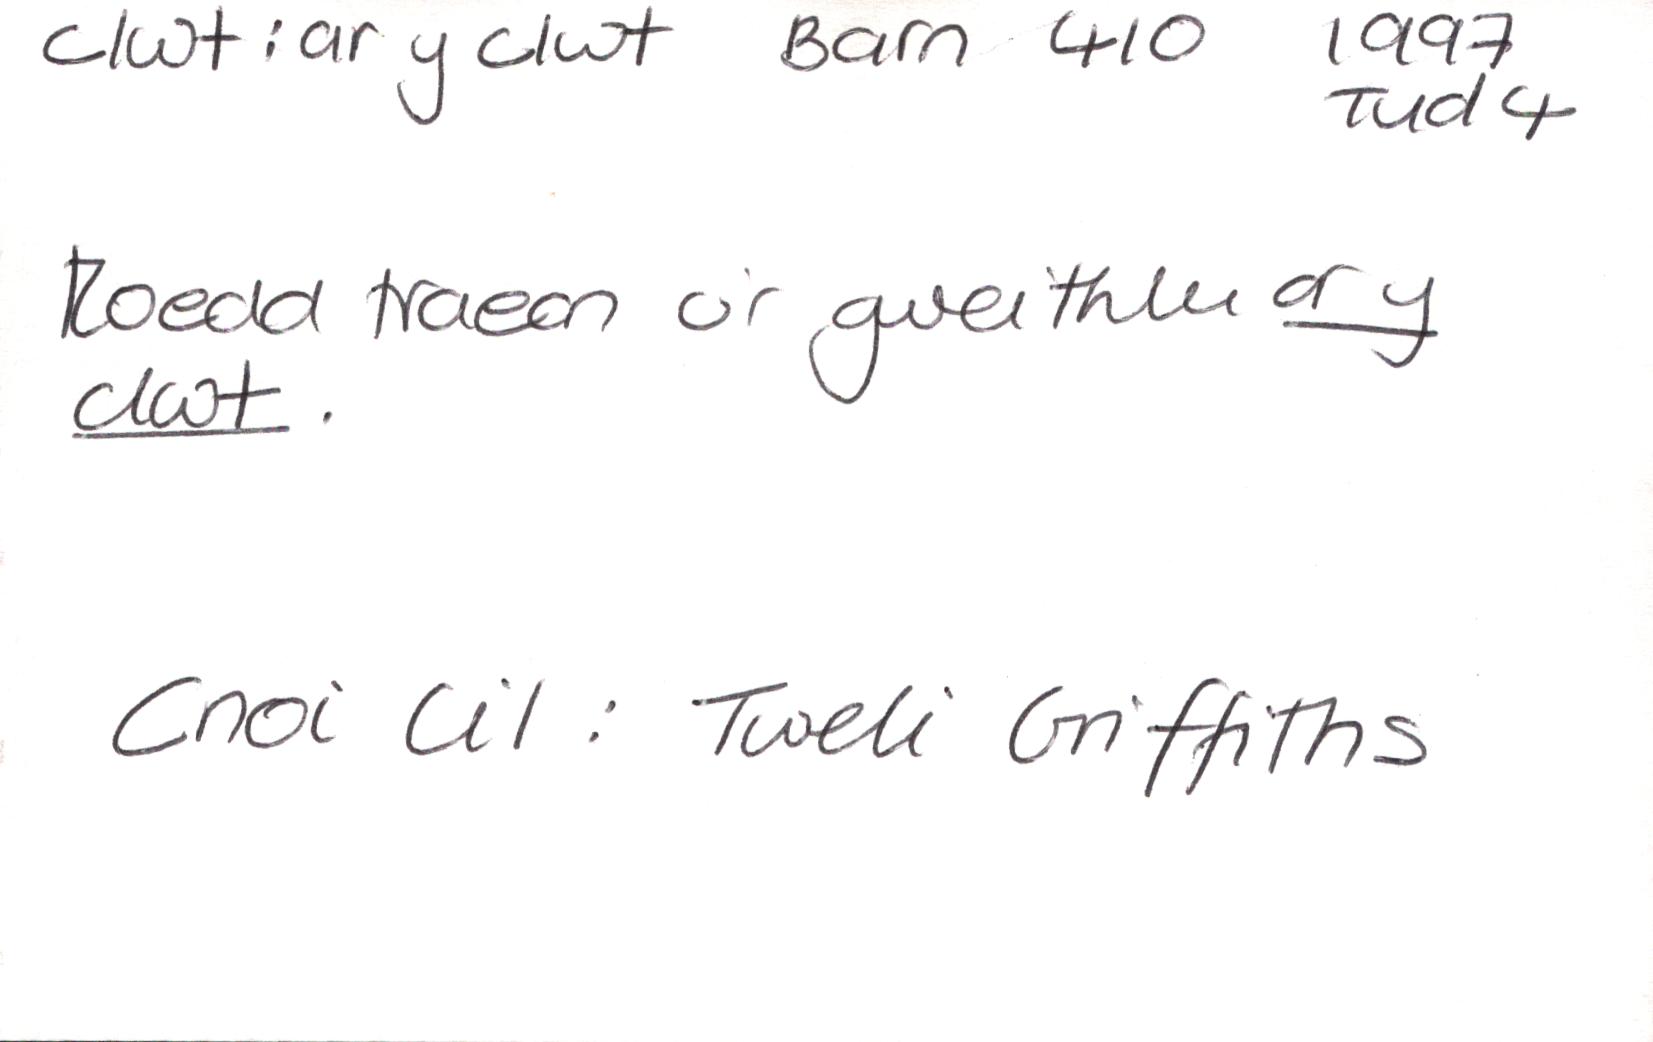 clwt: ar y clwt Barn 410 1997
Tud 4
Roedd traean o'r gweithlu ar y
clwt.
Cnoi Cil: Tweli Griffiths